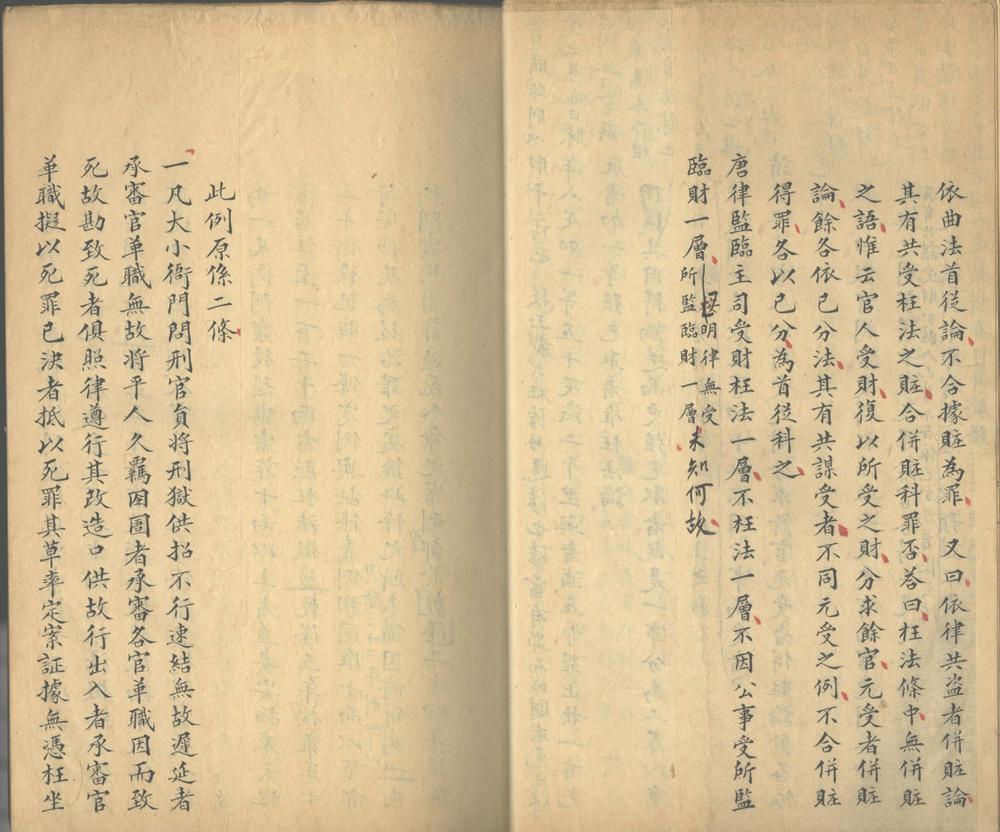 依曲法首從論不合據賍為罪又曰依律共盗者併賍論
其有共受枉法之賍合併賍科罪否荅曰枉法條中無併賍
之語惟云官人受財復以所受之財分求餘官元受者併賍
論餘各依已分法其有共謀受者不同元受之例不合併賍
得罪各以已分為首從科之
唐律監臨主司受財枉法一層不枉法一層不因公事受所監
臨財一層明律無受
所監臨財一層未知何故
此例原條二條
一凡大小衙門問刑官員將刑獄供招不行速結無故遲延者
承審官革職無故將平人久羈囹圄者承審各官革職因而致
死故勘致死者俱照律遵行其改造口供故行出入者承審官
革職擬以死罪已決者抵以死罪其草率定案証據無憑枉坐